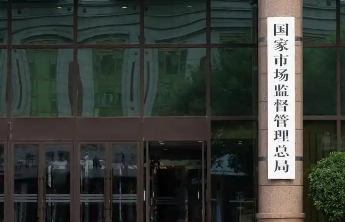 国家市场监督管理总局